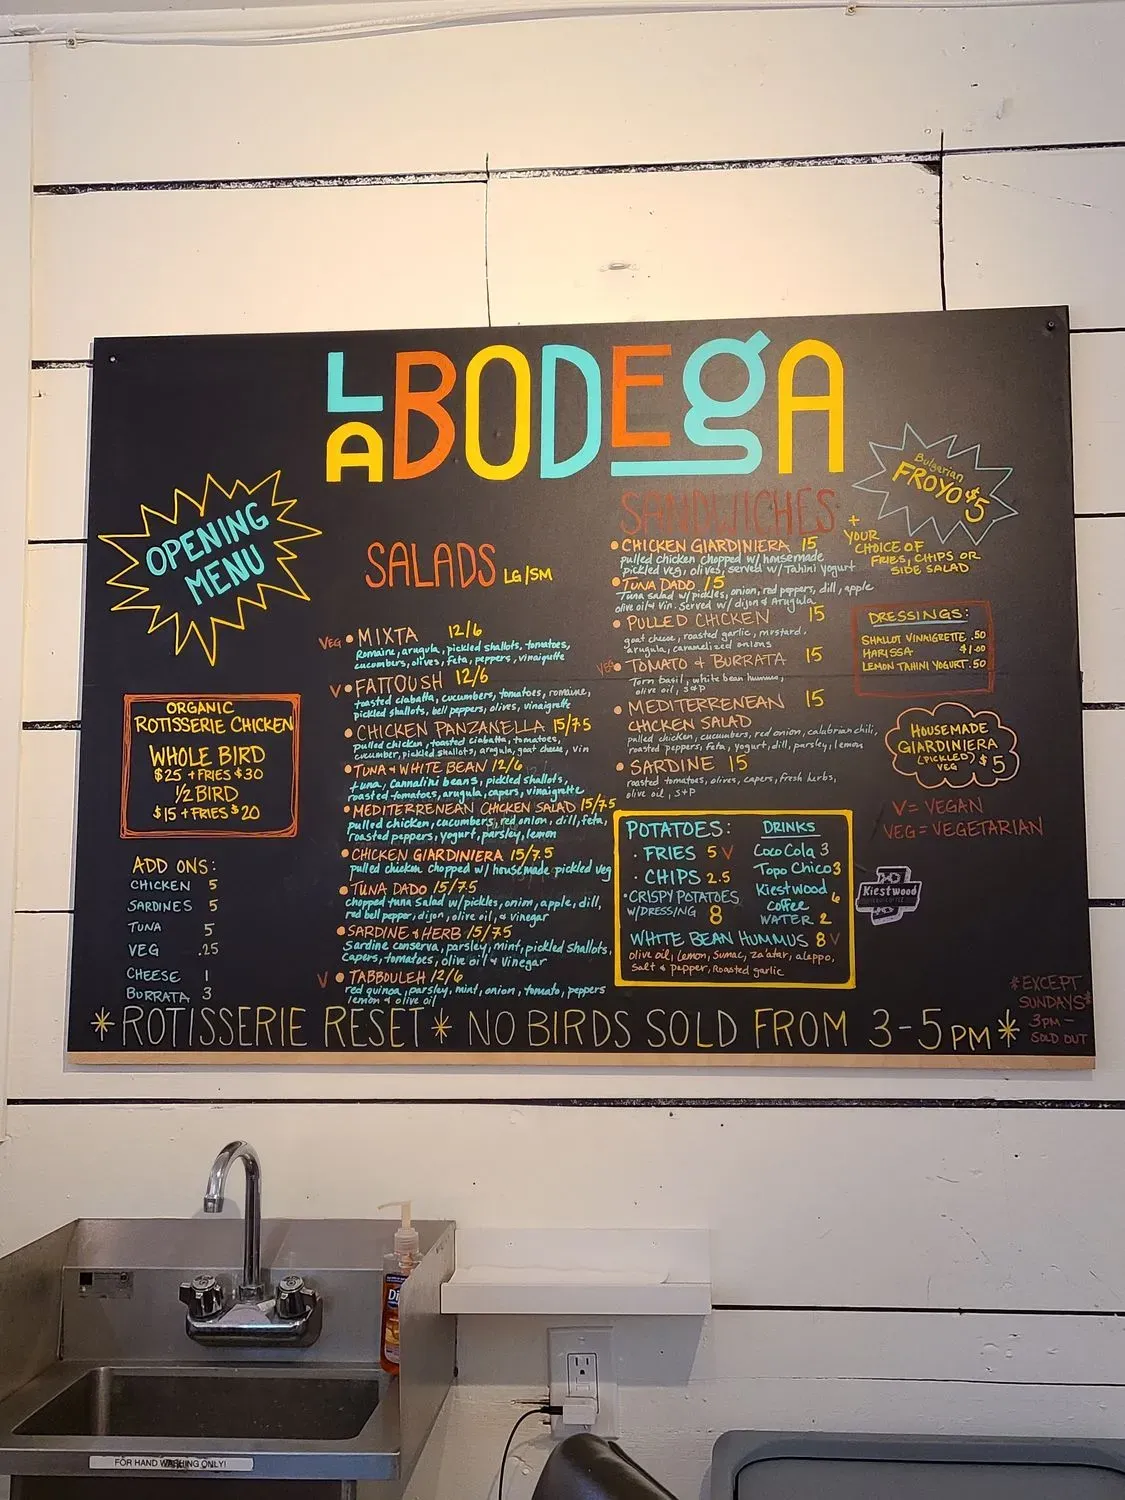 LA BODEGA
OPENING
MENU
Bulgarian
FROYO $5
SALADS LG/SM
VEG • MIXTA 12/6
Romaine, arugula, pickled shallots, tomatoes,
cucumbers, olives, feta, peppers, vinaigrette
V • FATTOUSH 12/6
toasted ciabatta, cucumbers, tomatoes, romaine,
pickled shallots, bell peppers, olives, vinaigrette
• CHICKEN PANZANELLA 15/7.5
pulled chicken, toasted ciabatta, tomatoes,
cucumber, pickled shallots, arugula, goat cheese, vin
• TUNA + WHITE BEAN 12/6
tuna, Cannalini beans, pickled shallots,
roasted tomatoes, arugula, capers, vinaigrette
• MEDITERRENEAN CHICKEN SALAD 15/7.5
pulled chicken, cucumbers, red onion, dill, feta,
roasted peppers, yogurt, parsley, lemon
• CHICKEN GIARDINIERA 15/7.5
pulled chicken chopped w/ housemade pickled veg
• TUNA DADO 15/7.5
chopped tuna Salad w/pickles, onion, apple, dill,
red bell pepper, dijon, olive oil, & vinegar
• SARDINE & HERB 15/7.5
Sardine conserva, parsley, mint, pickled shallots,
Capers, tomatoes, olive oil & Vinegar
V • TABBOULEH 12/6
red quinoa, parsley, mint, onion, tomato, peppers
lemon & olive oil
SANDWICHES
+ YOUR
CHOICE OF
FRIES, CHIPS OR
SIDE SALAD
• CHICKEN GIARDINIERA 15
pulled chicken chopped w/ housemade
pickled veg, olives, served w/ Tahini yogurt
• TUNA DADO 15
Tuna salad w/pickles, onion, red peppers, dill, apple
olive oil & Vin. Served w/ dijon & Arugula
• PULLED CHICKEN 15
goat cheese, roasted garlic, mustard,
arugula, caramelized onions
VEG • TOMATO & BURRATA 15
Torn basil, white bean hummus,
olive oil, S+P
• MEDITERRENEAN 15
CHICKEN SALAD
pulled chicken, cucumbers, red onion, calabrian chili,
roasted peppers, feta, yogurt, dill, parsley, lemon
• SARDINE 15
roasted tomatoes, olives, capers, fresh herbs,
olive oil, S+P
DRESSINGS:
SHALLOT VINAIGRETTE .50
HARISSA $1.00
LEMON TAHINI YOGURT .50
HOUSEMADE
GIARDINIERA
(PICKLED)
VEG $5
V = VEGAN
VEG = VEGETARIAN
ORGANIC
ROTISSERIE CHICKEN
WHOLE BIRD
$25 + FRIES $30
1/2 BIRD
$15 + FRIES $20
ADD ONS:
CHICKEN 5
SARDINES 5
TUNA 5
VEG .25
CHEESE 1
BURRATA 3
POTATOES:
• FRIES 5 V
• CHIPS 2.5
• CRISPY POTATOES
W/DRESSING 8
WHITE BEAN HUMMUS 8 V
olive oil, lemon, Sumac, za'atar, aleppo,
Salt & pepper, Roasted garlic
DRINKS
Coco Cola 3
Topo Chico 3
Kiestwood
Coffee 6
WATER 2
Kiestwood
*ROTISSERIE RESET* NO BIRDS SOLD FROM 3-5PM*
*EXCEPT
SUNDAYS*
3PM -
SOLD OUT
Di
FOR HAND WASHING ONLY!